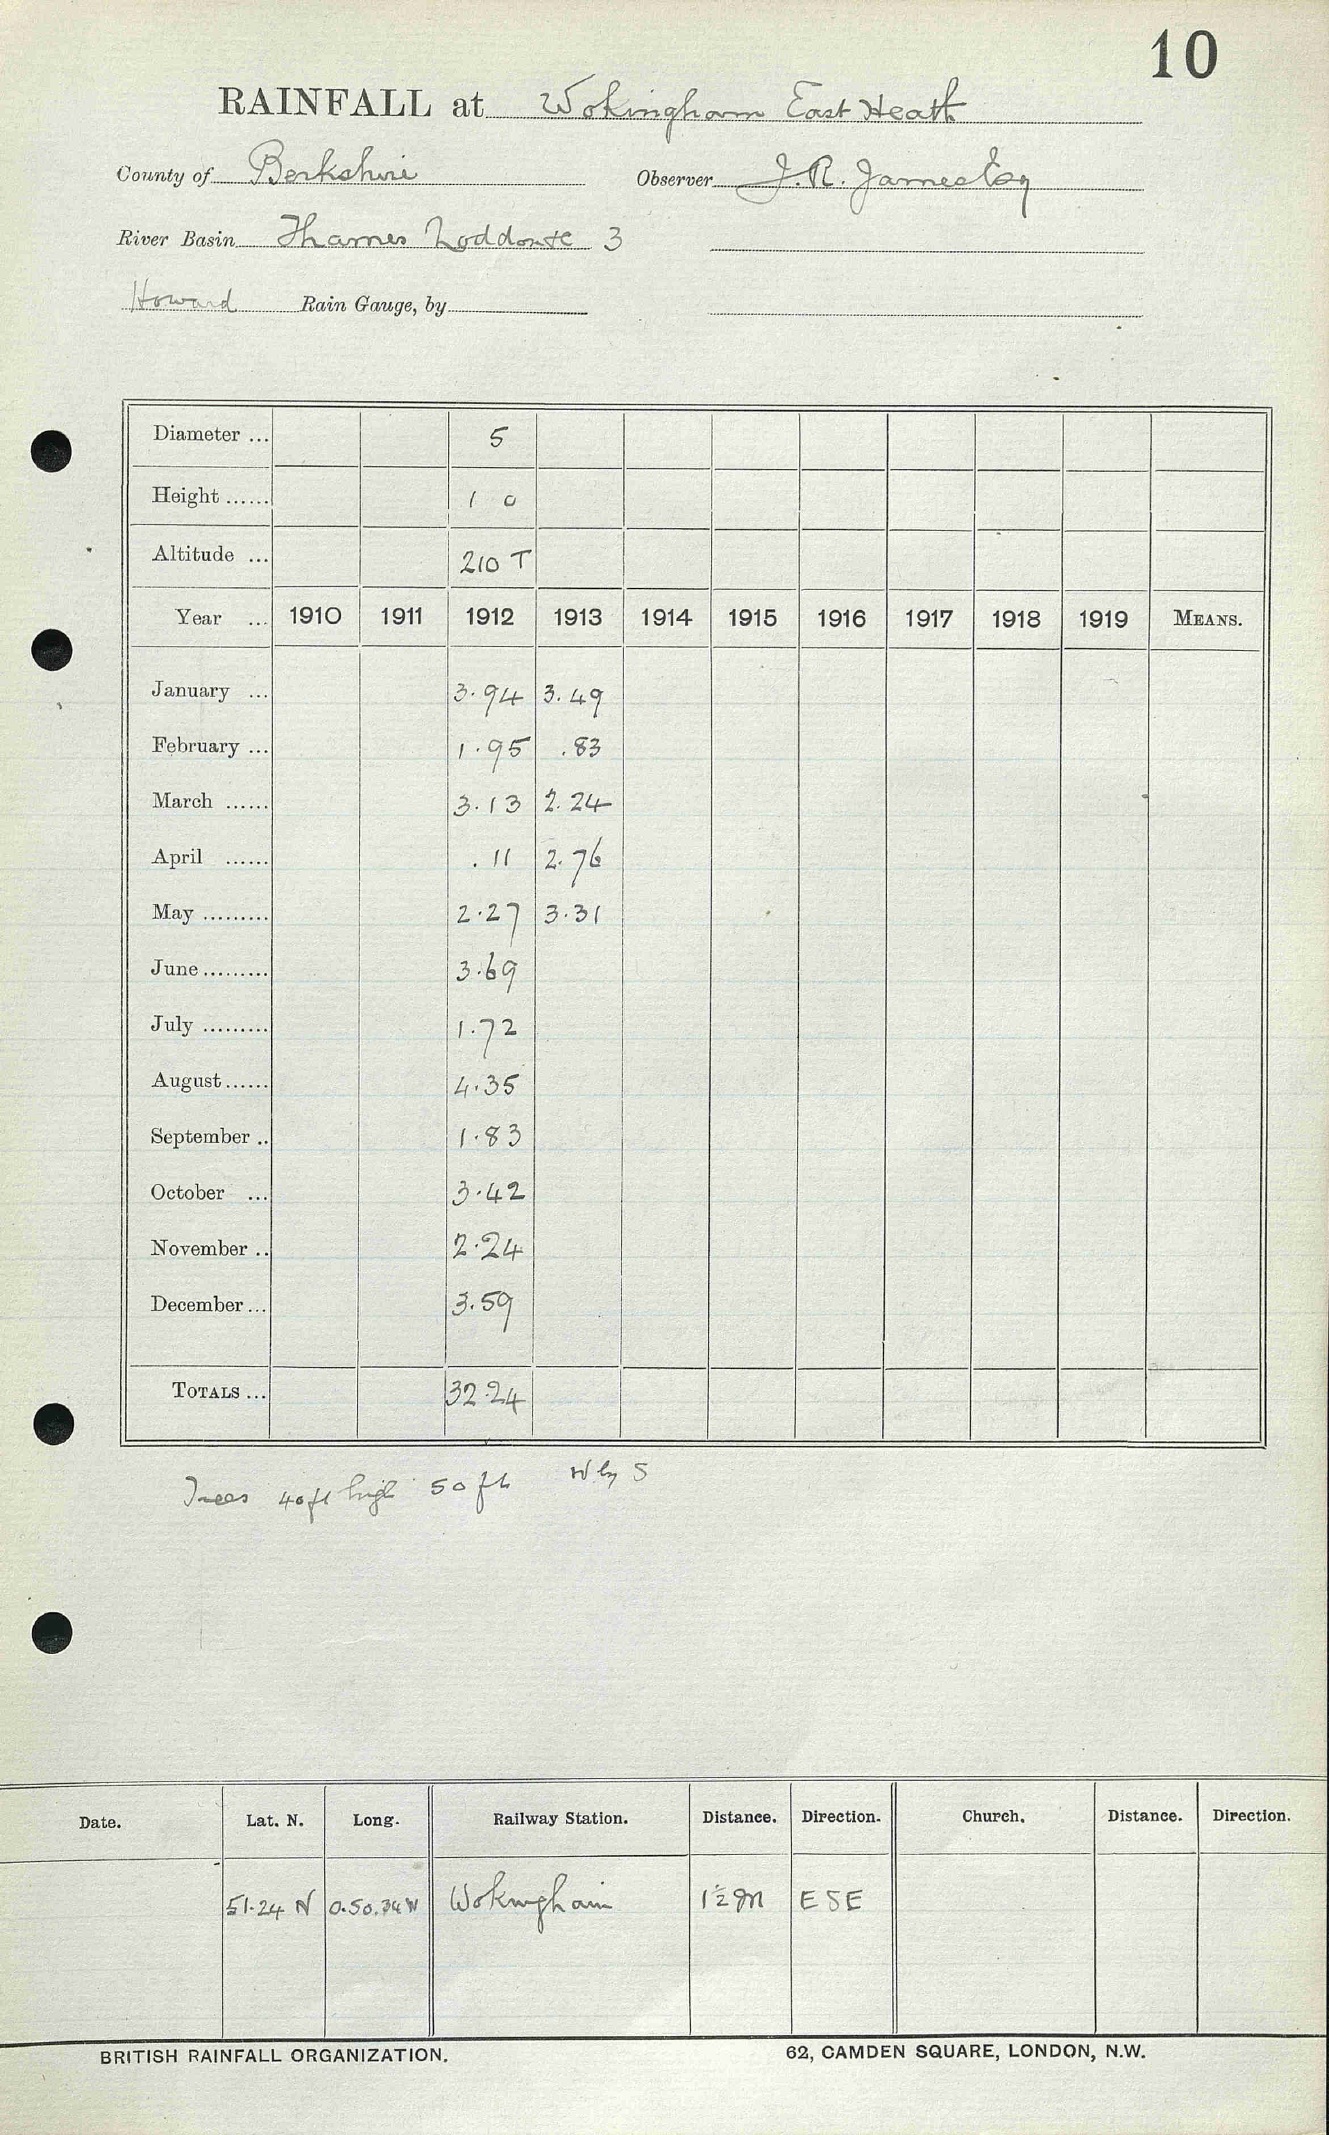 10
RAINFALL at Wokingham East Heath
County of Berkshire Observer J.R. James Esq
River Basin Thames Loddon &c 3
Howard Rain Gauge, by
Diameter ... 5
Height ...... 1 0
Altitude ... 210 T
Year ... 1910 1911 1912 1913 1914 1915 1916 1917 1918 1919 MEANS.
January ... 3.94 3.49
February ... 1.95 .83
March ...... 3.13 2.24
April ...... .11 2.76
May ......... 2.27 3.31
June ......... 3.69
July ......... 1.72
August ...... 4.35
September .. 1.83
October ... 3.42
November .. 2.24
December ... 3.59
TOTALS ... 32.24
Trees 40ft high 50 ft W by S
Date. Lat. N. Long. Railway Station. Distance. Direction. Church. Distance. Direction.
51.24 N 0.50.34 W Wokingham 1½ M ESE
BRITISH RAINFALL ORGANIZATION. 62, CAMDEN SQUARE, LONDON, N.W.